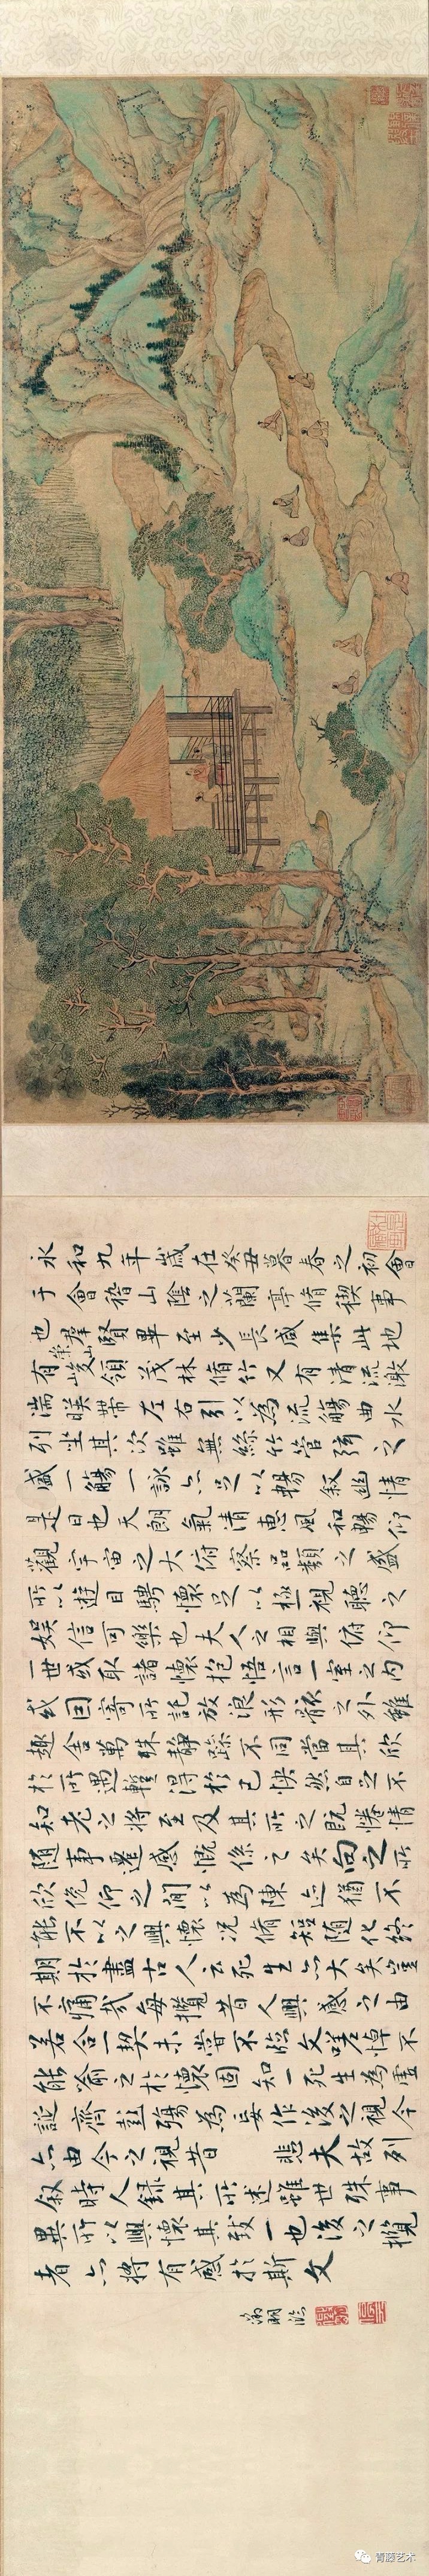 永和九年歲在癸丑暮春之初會
于會稽山陰之蘭亭脩禊事
也羣賢畢至少長咸集此地
有崇山峻領茂林脩竹又有清流激
湍暎帶左右引以為流觴曲水
列坐其次雖無絲竹管弦之
盛一觴一詠亦足以暢叙幽情
是日也天朗氣清惠風和暢仰
觀宇宙之大俯察品類之盛
所以遊目騁懷足以極視聽之
娛信可樂也夫人之相與俯仰
一世或取諸懷抱悟言一室之內
或因寄所託放浪形骸之外雖
趣舍萬殊靜躁不同當其欣
於所遇暫得於己快然自足不
知老之將至及其所之既惓情
隨事遷感慨係之矣向之所
欣俛仰之間以為陳迹猶不
能不以之興懷況脩短隨化終
期於盡古人云死生亦大矣豈
不痛哉每攬昔人興感之由
若合一契未嘗不臨文嗟悼不
能喻之於懷固知一死生為虛
誕齊彭殤為妄作後之視今
亦由今之視昔 悲夫故列
叙時人錄其所述雖世殊事
異所以興懷其致一也後之攬
者亦將有感於斯文
徵明臨
青藤艺术